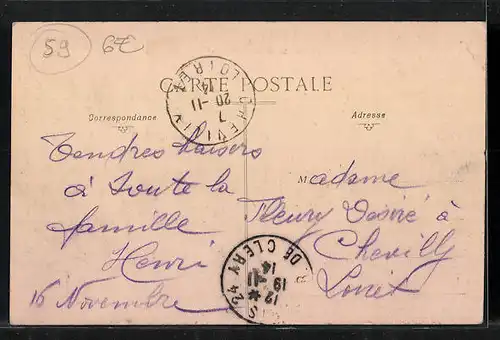 59 6E
CARTE POSTALE
CHEVILLY
LOIRET
7
20-11
14
Correspondance
Adresse
Tendres baisers
à toute la
famille
Henri
16 Novembre
Madame
Fleury Désiré à
Chevilly
Loiret
DE CLERY 42
12
19-11
14